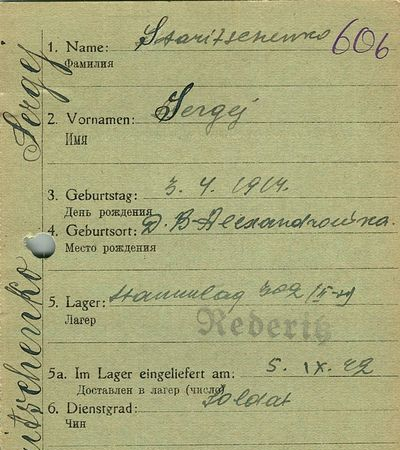 1. Name: Staritschenko 606
Фамилия
2. Vornamen: Sergej
Имя
3. Geburtstag: 3. 4. 1914.
День рождения
4. Geburtsort: D. B-Alexandrowka.
Место рождения
5. Lager: Stammlag 302 (II-H)
Лагер
Rederitz
5a. Im Lager eingeliefert am: 5. IX. 42
Доставлен в лагер (число)
6. Dienstgrad: Soldat
Чин
Sergej
itschenko